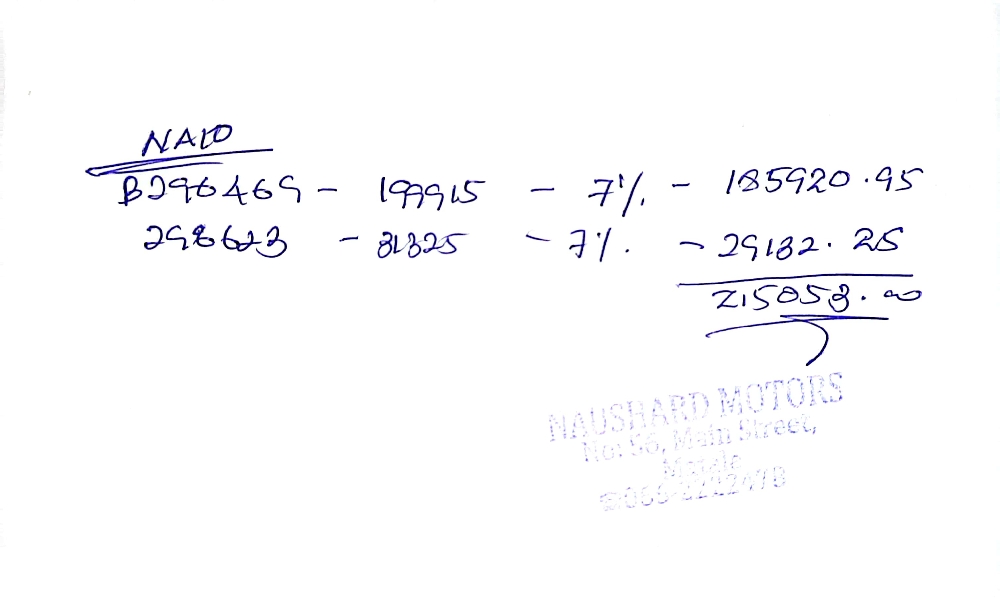 B296469 - 199915 - 7% - 185920.95
298623 - 31325 - 7% - 29132.25
215053.00
NAUSHARD MOTORS
No: 56, Main Street,
Matale